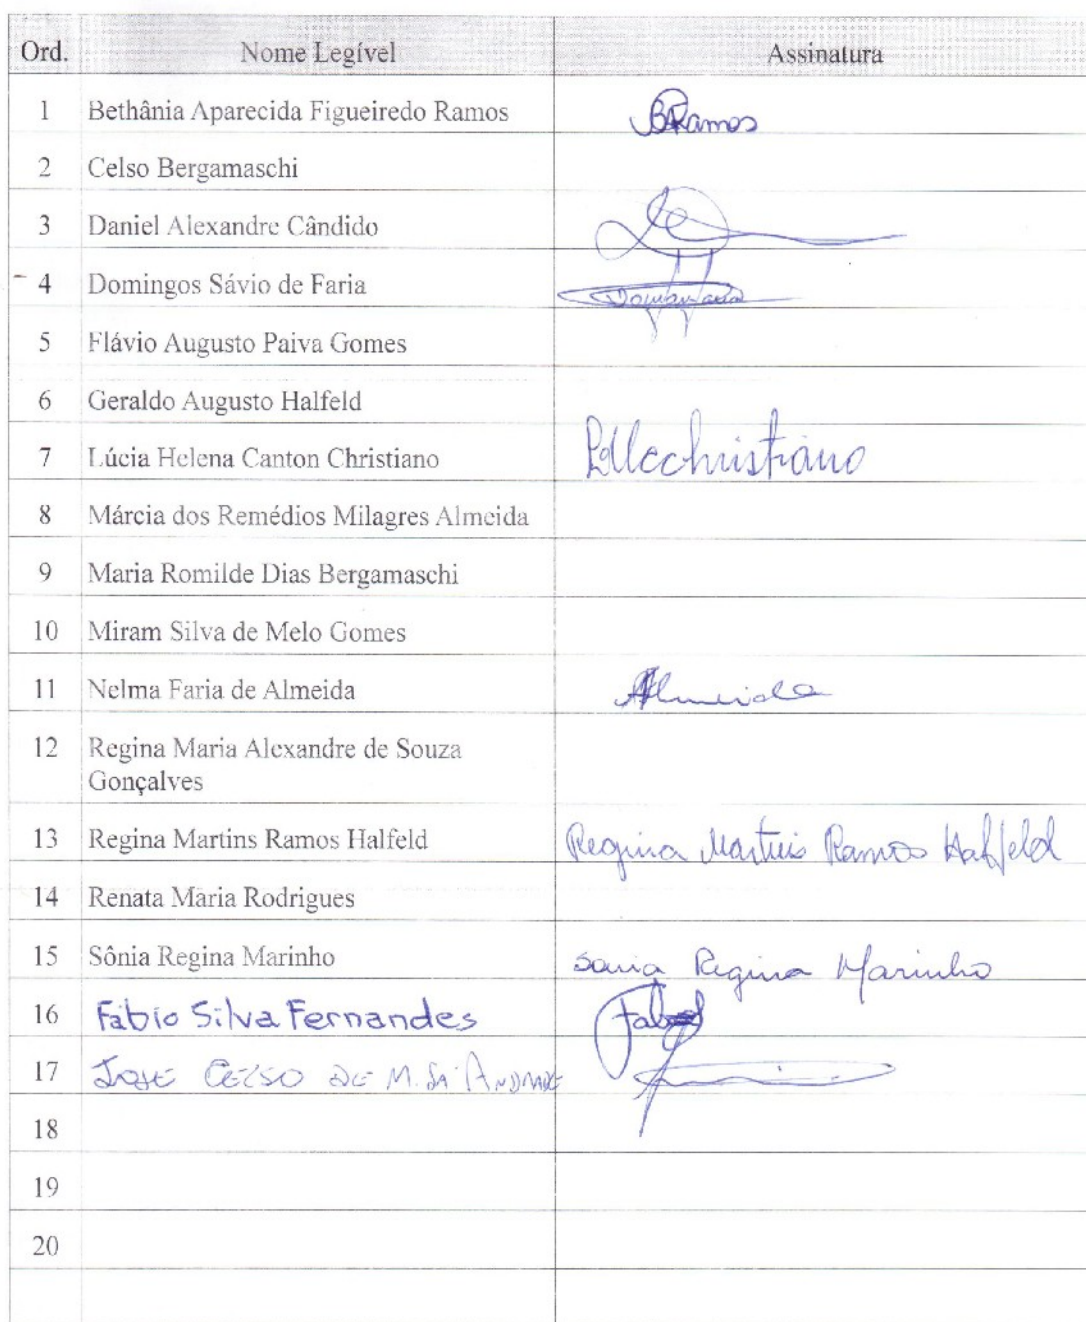 Ord. Nome Legível Assinatura
1 Bethânia Aparecida Figueiredo Ramos BRamos
2 Celso Bergamaschi
3 Daniel Alexandre Cândido
4 Domingos Sávio de Faria
5 Flávio Augusto Paiva Gomes
6 Geraldo Augusto Halfeld
7 Lúcia Helena Canton Christiano
8 Márcia dos Remédios Milagres Almeida
9 Maria Romilde Dias Bergamaschi
10 Miram Silva de Melo Gomes
11 Nelma Faria de Almeida Almeida
12 Regina Maria Alexandre de Souza
Gonçalves
13 Regina Martins Ramos Halfeld Regina Martins Ramos Halfeld
14 Renata Maria Rodrigues
15 Sônia Regina Marinho Sonia Regina Marinho
16 Fábio Silva Fernandes
17 JOSÉ CELSO DE M. SÁ ANDRADE
18
19
20